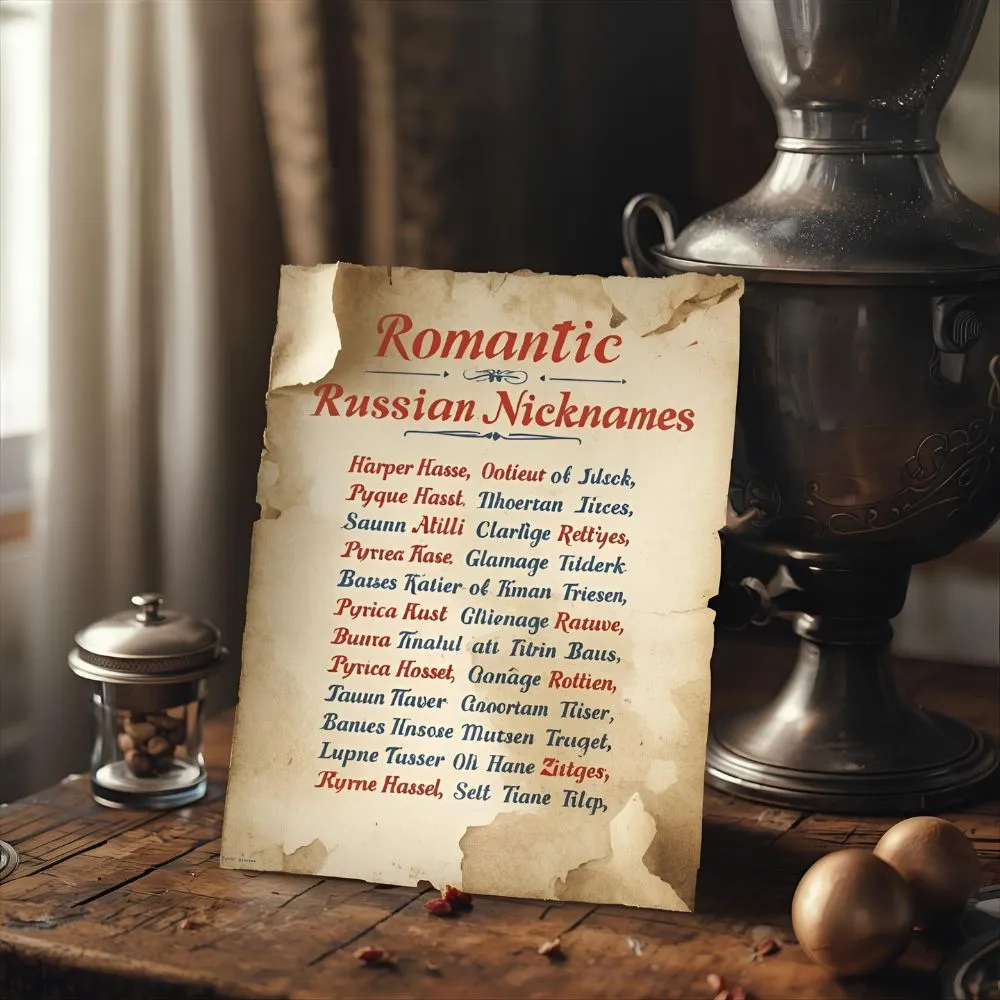 Romantic
Russian Nicknames
Harper Hasse, Ootieut of Julsck,
Pyque Hasst. Thoertan Jirces,
Saunn Atilli Clarlige Rettiyes,
Pyriea Rase. Glamage Tiiderk
Batses Katier of Kman Friesen,
Pyrica Kust Gliienage Ratuve,
Bunra Tinalul ati Titrin Baus,
Pyrica Hosset, Gonage Rottien,
Jauun Tlaver Gnoortam Tliser,
Banues Hnsose Mutsen Truget,
Lupne Tusser Oli Hane Zittges,
Ryrne Hassel, Selt Tiane Tilcp,